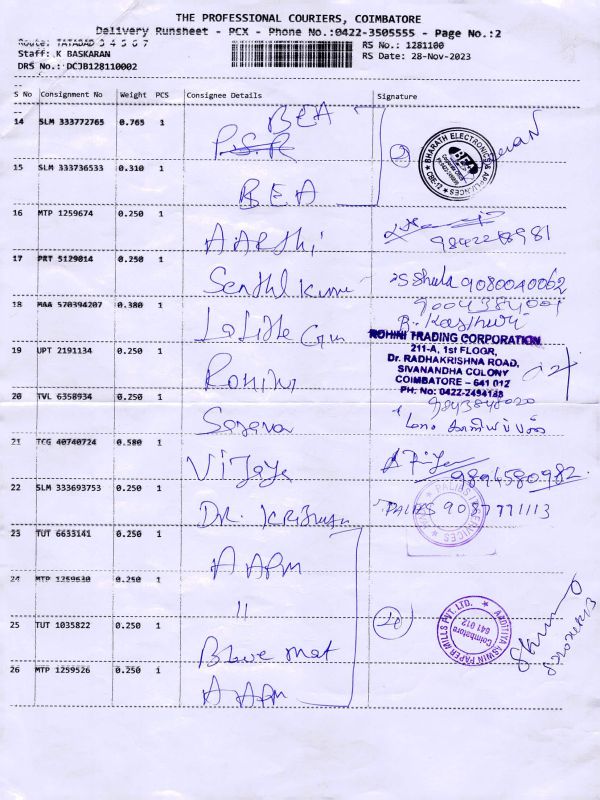 THE PROFESSIONAL COURIERS, COIMBATORE
Delivery Runsheet - PCX - Phone No.:0422-3505555 - Page No.:2
Route: TATABAD 3 4 5 6 7
RS No.: 1281100
Staff: K BASKARAN
RS Date: 28-Nov-2023
DRS No.: DCJB128110002
S No Consignment No Weight PCS Consignee Details Signature
14 SLM 333772765 0.765 1 BEA
P.S.R
BHARATH ELECTRONICS & APPLIANCES
BEA
15 SLM 333736533 0.310 1 BEA
16 MTP 1259674 0.250 1 AARthi
17 PRT 5129014 0.250 1 Senthil Kumar 9080040062
18 MAA 570394207 0.380 1
B. Kasthuri
ROHINI TRADING CORPORATION
211-A, 1st FLOOR,
Dr. RADHAKRISHNA ROAD,
SIVANANDHA COLONY
COIMBATORE - 641 012
PH: No: 0422-2494148
19 UPT 2191134 0.250 1 Rohini
20 TVL 6358934 0.250 1 Sarava
21 TCG 40740724 0.580 1 Vijaya 9894580982
22 SLM 333693753 0.250 1 DR. Krishnan PALIBS 9087771113
23 TUT 6633141 0.250 1 AAPM
24 MTP 1259630 0.250 1 "
25 TUT 1035822 0.250 1 Blue mat
ADDITIYA ASWIN PAPER MILLS PVT. LTD.
Coimbatore
641 012
26 MTP 1259526 0.250 1 AAPM